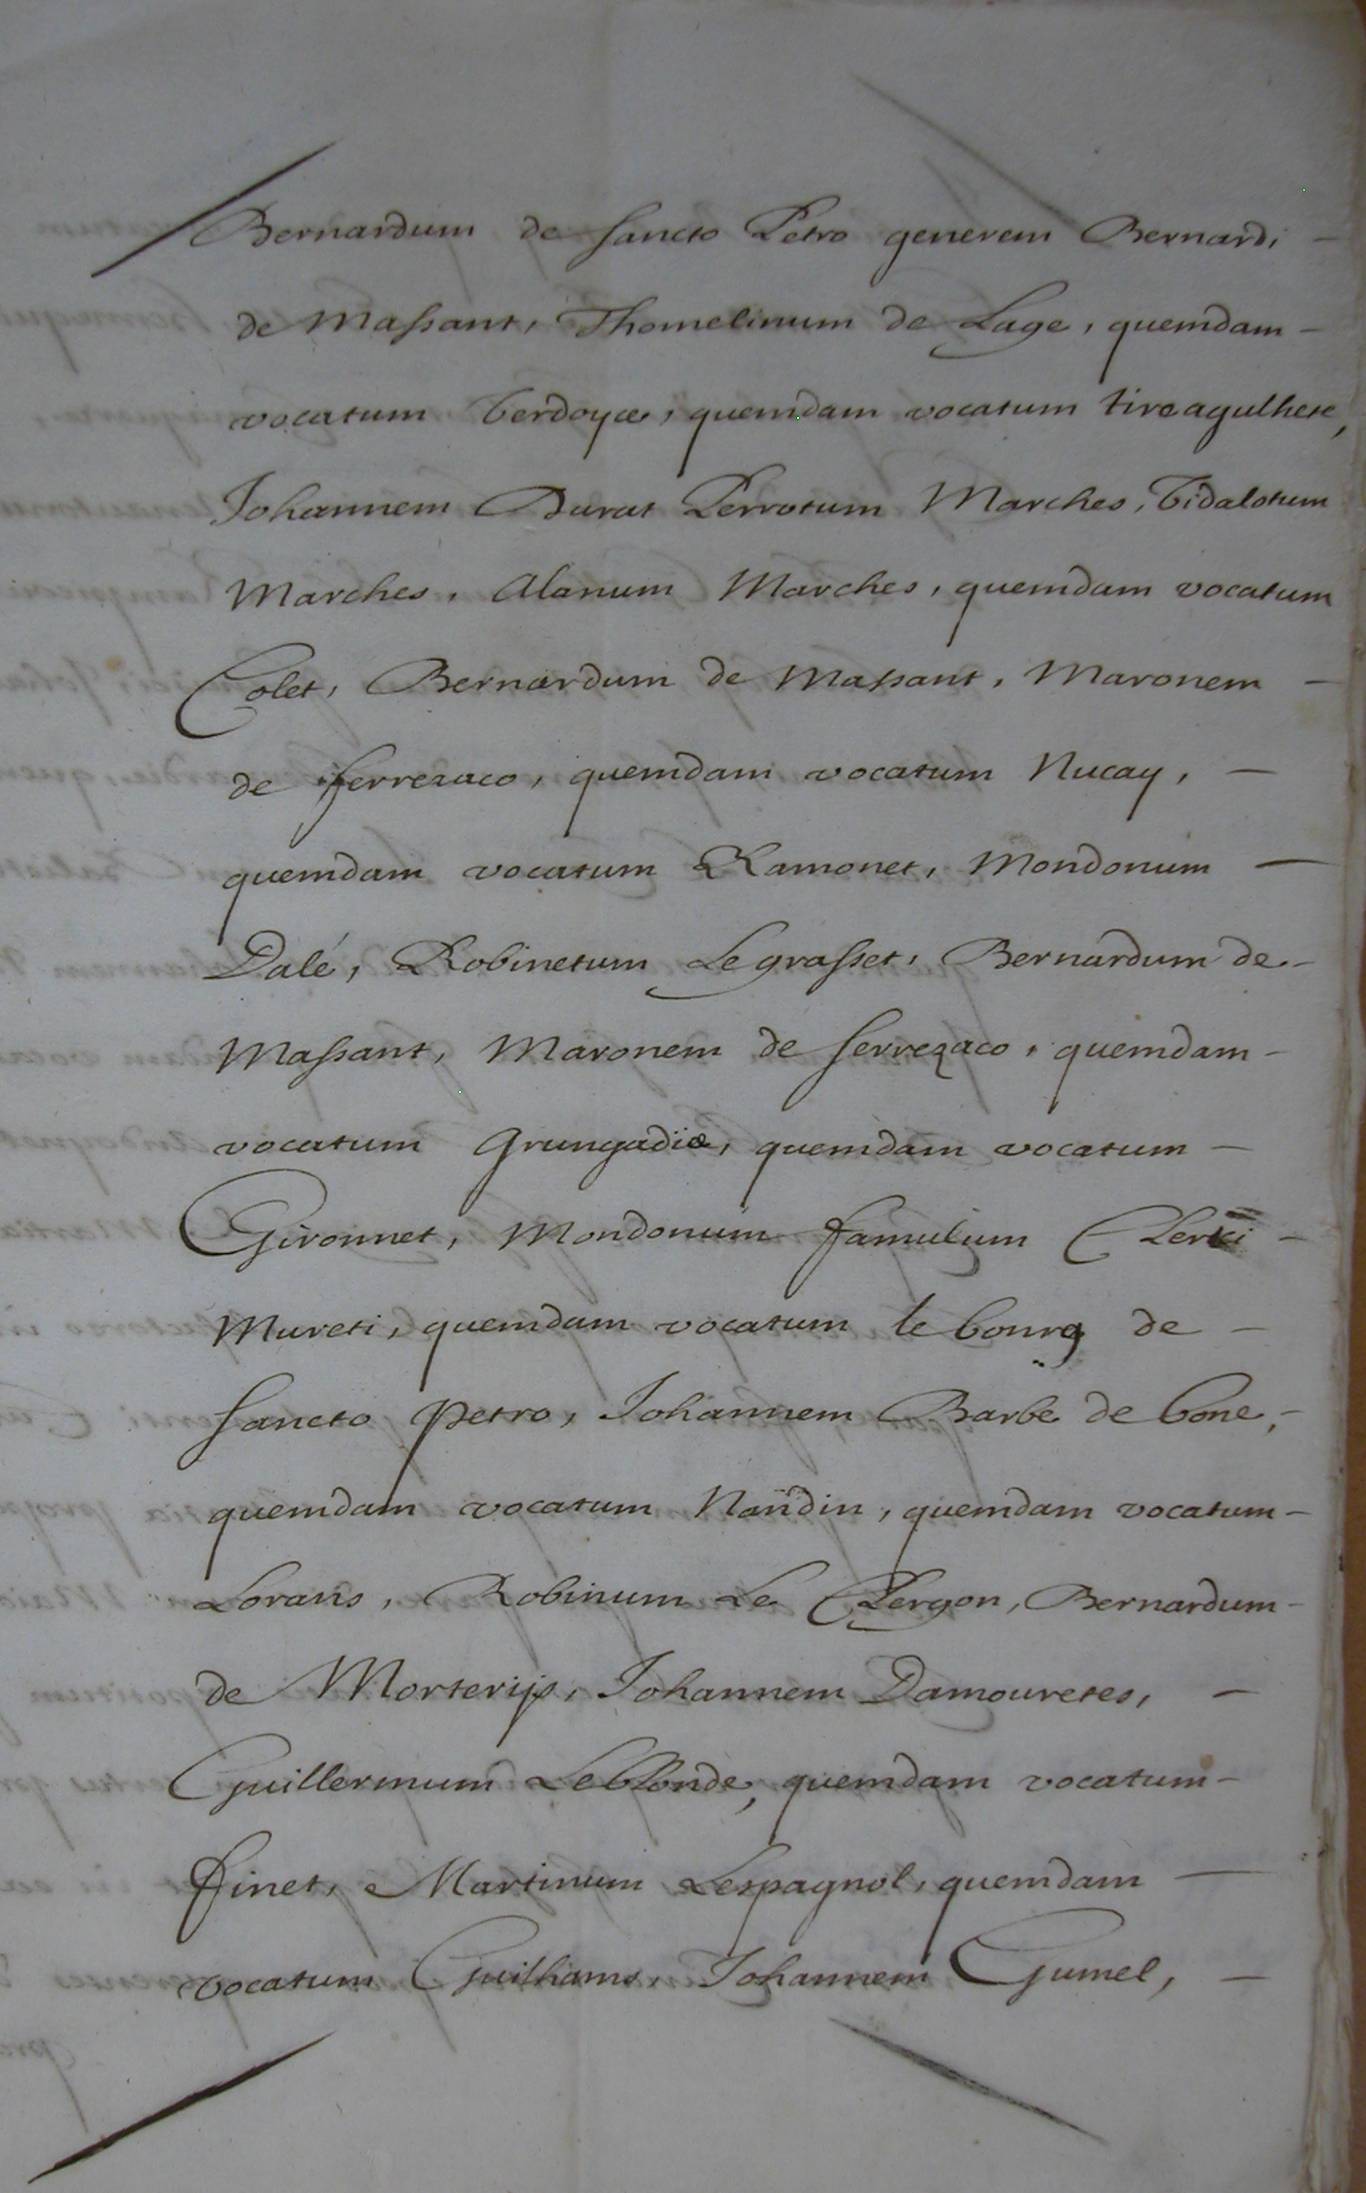 Bernardum de Sancto Petro generem Bernardi –
de Massant, Thomelinum de Lage, quemdam –
vocatum Berdoyæ, quemdam vocatum tireagulhete,
Johannem Durat Perrotum Marches, Vidalotum
Marches, Alanum Marches, quemdam vocatum
Colet, Bernardum de Massant, Maronem –
de ferrezaco, quemdam vocatum Nucay, –
quemdam vocatum Ramonet, Mondonum –
Dalé, Robinetum Legrasset, Bernardum de –
Massant, Maronem de Serrezaco, quemdam –
vocatum Grungadiæ, quemdam vocatum –
Gironnet, Mondonum famulum Clerici –
Mureti, quemdam vocatum le bourg de –
Sancto Petro, Johannem Barbe de bone, –
quemdam vocatum Naudin, quemdam vocatum –
Lorans, Robinum Le Clergon, Bernardum –
de Morterijs, Johannem Damouretes, –
Guillermum Leblonde, quemdam vocatum –
finet, Martinum Lespagnol, quemdam –
vocatum Guilhams, Johannem Gumel, –